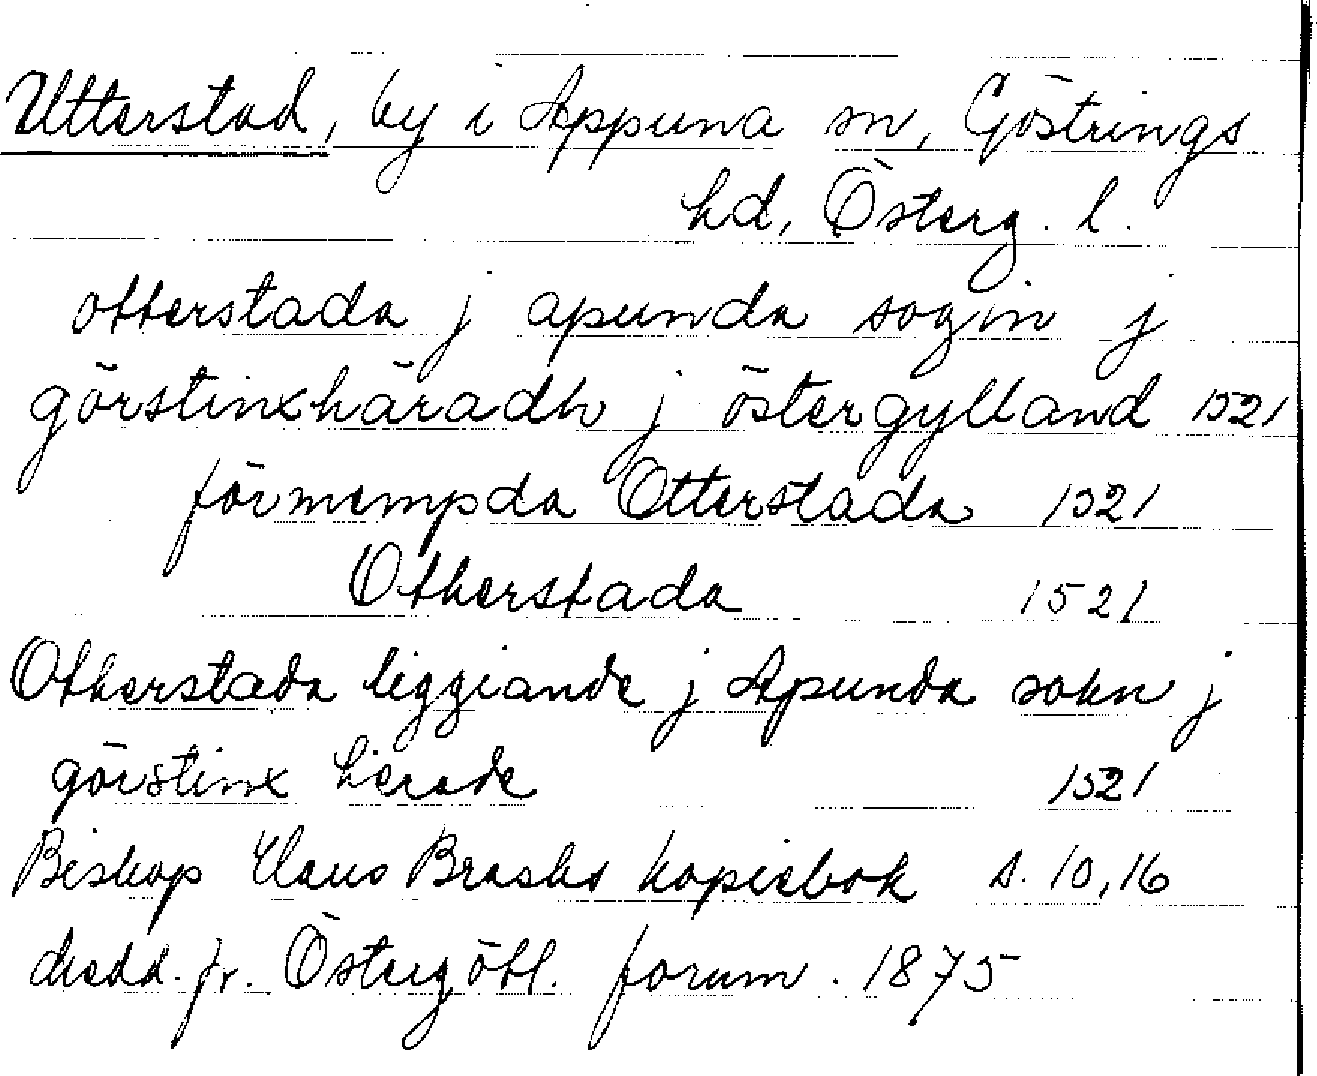 Utterstad, by i Appuna sn, Göstrings
hd, Österg. l.
otterstada j apunda sogin j
görstinxhäradh j östergylland 1521
förmempda Otterstada 1521
Otherstada 1521
Otherstada liggiande j Apunda sokn j
görstinx hierade 1521
Biskop Hans Brasks kopiebok s. 10, 16
Medd. fr. Östergötl. fornm. 1875